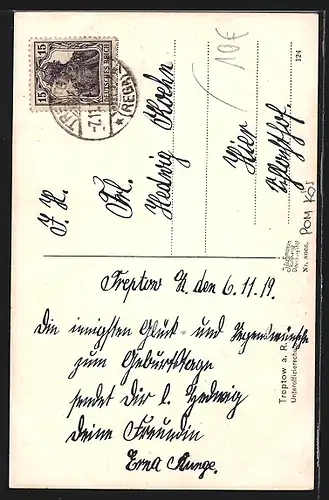 15 DEUTSCHES REICH 15
-7.11.
(REGA)
10€
124
I. H.
Frl.
Hedwig Koehn
Hier
POM KOI
Treptow R. den 6.11.19.
Die innigsten Glück- und Segenswünsche
zum Geburtstage
sendet Dir l. Hedwig
deine Freundin
Erna Kunge.
Treptow a. R.